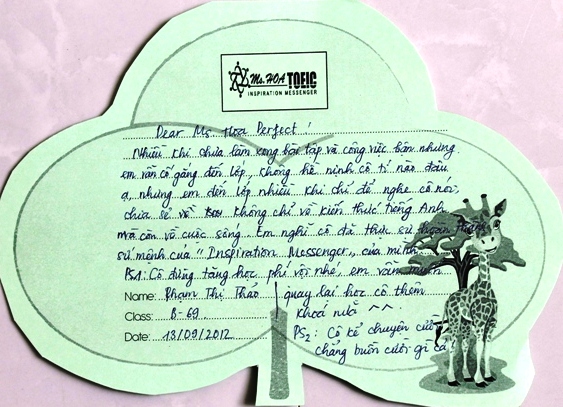 Ms. HOA TOEIC
INSPIRATION MESSENGER
Dear Ms. Hoa Perfect!
Nhiều khi chưa làm xong bài tập và công việc bận nhưng
em vẫn cố gắng đến lớp, không hề nịnh cô tí nào đâu
ạ, nhưng em đến lớp nhiều khi chỉ để nghe cô nói,
chia sẻ về không chỉ về kiến thức tiếng Anh
mà còn về cuộc sống. Em nghĩ cô đã thực sự hoàn thành
sứ mệnh của "Inspiration Messenger" của mình
PS1: Cô đừng tăng học phí vội nhé, em vẫn muốn
Name: Phạm Thị Thảo quay lại học cô thêm
Class: B-69 khóa nữa ^^
Date: 18/09/2012 PS2: Cô kể chuyện cười
chẳng buồn cười gì cả